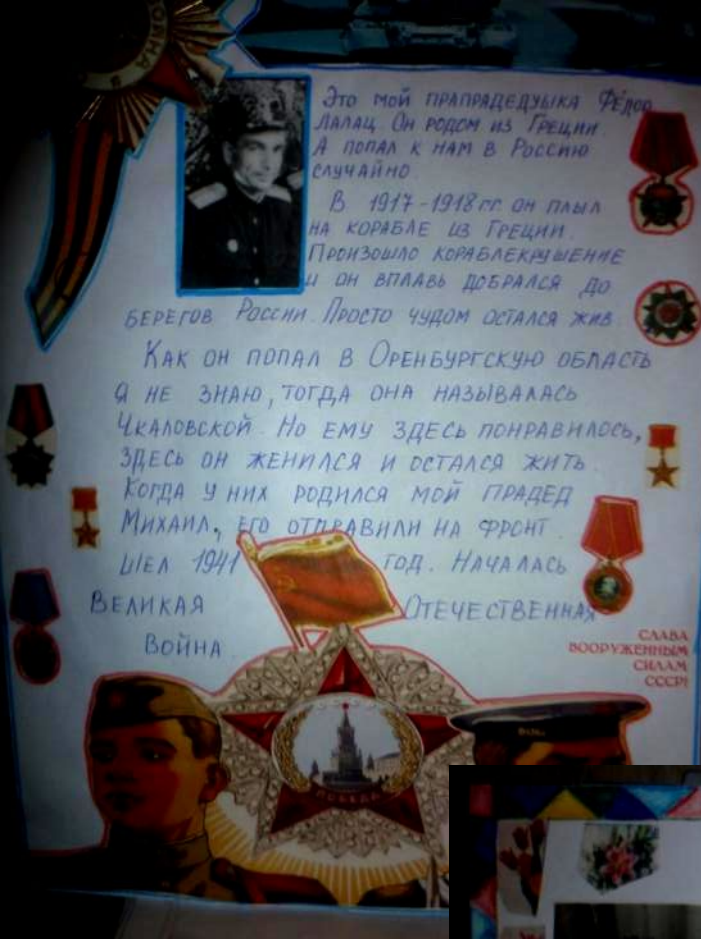 ВОЙНА
Это мой прапрадедушка Фёдор
Лалац. Он родом из Греции.
А попал к нам в Россию
случайно.
В 1917-1918 гг. он плыл
на корабле из Греции.
Произошло кораблекрушение
и он вплавь добрался до
берегов России. Просто чудом остался жив.
Как он попал в Оренбургскую область
я не знаю, тогда она называлась
Чкаловской. Но ему здесь понравилось,
здесь он женился и остался жить.
Когда у них родился мой прадед
Михаил, его отправили на фронт.
Шел 1941 год. Началась
Великая Отечественная
война.
СЛАВА
ВООРУЖЕННЫМ
СИЛАМ
СССР!
ПОБЕДА